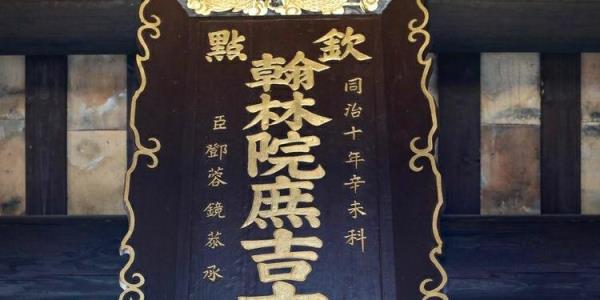 欽點
同治十年辛未科
翰林院庶吉
臣鄧蓉鏡恭承